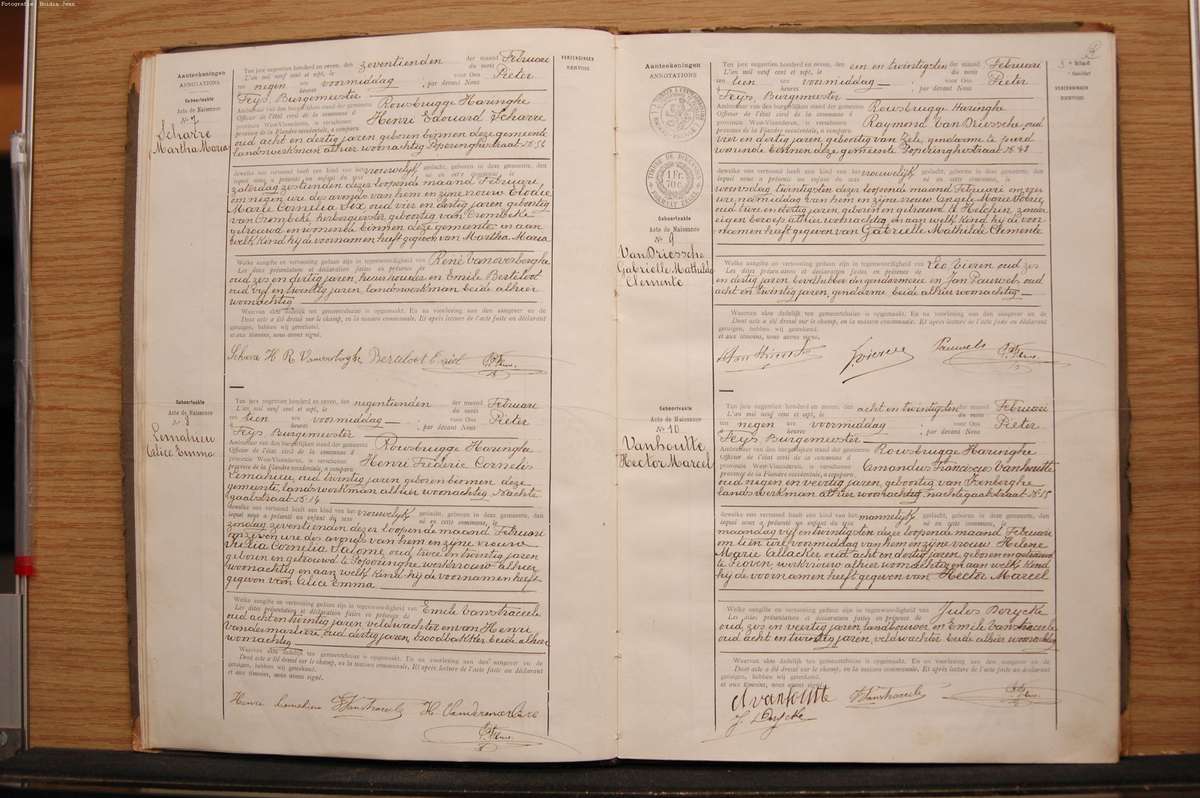 Fotografie: Boidin Jean
Aanteekeningen
ANNOTATIONS
Geboorteakte
Acte de Naissance
N. 7
Schavre
Martha Maria
Ten jare negentien honderd en zeven, den zeventienden der maand Februari
L'an mil neuf cent et sept, le du mois
ten negen ure voormiddag voor Ons Pieter
heures par devant Nous
Feys Burgemeester
Ambtenaar van den burgerlijken stand der gemeente Rousbrugge Haringhe
Officier de l'état civil de la commune d
Provincie West-Vlaanderen, is verschenen Henri Edouard Schavre
province de la Flandre occidentale, a comparu
oud acht en dertig jaren geboren binnen deze gemeente
landswerkman alhier woonachtig Poperinghestraat N. 54
dewelke ons vertoond heeft een kind van het vrouwelijk geslacht, geboren in deze gemeente, den
lequel nous a présenté un enfant du sexe né en cette commune, le
zaterdag zestienden dezer loopende maand Februari,
om negen ure des avonds van hem en zijne vrouw Elodie
Marie Cornelia Six, oud vier en dertig jaren geboortig
van Crombeke herbergierster geboortig van Crombeke
getrouwd en wonende binnen deze gemeente en aan
welk kind hij de voornamen heeft gegeven van Martha Maria
Welke aangifte en vertooning gedaan zijn in tegenwoordigheid van René Vanoverberghe
Les dites présentation et déclaration faites en présence de
oud zes en dertig jaren, huurhouder en Emile Berteloot
oud vijf en twintig jaren landswerkman beide alhier
woonachtig
Waarvan akte dadelijk ten gemeentehuize is opgemaakt. En na voorlezing aan den aangever en de
Dont acte a été dressé sur le champ, en la maison communale. Et après lecture de l'acte faite au déclarant
getuigen, hebben wij geteekend.
et aux témoins, nous avons signé.
Schavre H. R. Vanoverberghe Berteloot Emiel P. Feys
Geboorteakte
Acte de Naissance
N. 8
Lemahieu
Alice Emma
Ten jare negentien honderd en zeven, den negentienden der maand Februari
L'an mil neuf cent et sept, le du mois
ten tien ure voormiddag voor Ons Pieter
heures par devant Nous
Feys Burgemeester
Ambtenaar van den burgerlijken stand der gemeente Rousbrugge Haringhe
Officier de l'état civil de la commune d
Provincie West-Vlaanderen, is verschenen Henri Frederic Cornelis
province de la Flandre occidentale, a comparu
Lemahieu, oud twintig jaren geboren binnen deze
gemeente, landswerkman alhier woonachtig Nachte
gaalstraat N. 14
dewelke ons vertoond heeft een kind van het vrouwelijk geslacht, geboren in deze gemeente, den
lequel nous a présenté un enfant du sexe né en cette commune, le
zondag zeventienden dezer loopende maand Februari
om zeven ure des avonds van hem en zijne vrouw
Julia Cornelia Salomé, oud twee en twintig jaren
geboren en getrouwd te Poperinghe, werkvrouw alhier
woonachtig en aan welk kind hij de voornamen heeft
gegeven van Alice Emma
Welke aangifte en vertooning gedaan zijn in tegenwoordigheid van Emile Vanstraceele
Les dites présentation et déclaration faites en présence de
oud acht en twintig jaren veldwachter en van Henri
Vandermarliere, oud dertig jaren, broodbakker beide alhier
woonachtig
Waarvan akte dadelijk ten gemeentehuize is opgemaakt. En na voorlezing aan den aangever en de
Dont acte a été dressé sur le champ, en la maison communale. Et après lecture de l'acte faite au déclarant
getuigen, hebben wij geteekend.
et aux témoins, nous avons signé.
Henri Lemahieu E. Vanstraceele H. Vandermarliere
P. Feys
VERZENDINGEN
RENVOIS
Aanteekeningen
ANNOTATIONS
TIMBRE DE DIMENSION
1 Fr.
70 c.
Geboorteakte
Acte de Naissance
N. 9
Van Driessche
Gabrielle Mathilde
Clemente
Ten jare negentien honderd en zeven, den een en twintigsten der maand Februari
L'an mil neuf cent et sept, le du mois
ten tien ure voormiddag voor Ons Pieter
heures par devant Nous
Feys Burgemeester
Ambtenaar van den burgerlijken stand der gemeente Rousbrugge Haringhe
Officier de l'état civil de la commune d
Provincie West-Vlaanderen, is verschenen Raymond Van Driessche, oud
province de la Flandre occidentale, a comparu
vier en dertig jaren geboortig van Zele, gendarme te peerd
wonende binnen deze gemeente Poperinghestraat N. 48
dewelke ons vertoond heeft een kind van het vrouwelijk geslacht, geboren in deze gemeente, den
lequel nous a présenté un enfant du sexe né en cette commune, le
woensdag twintigsten dezer loopende maand Februari om zes
ure namiddag van hem en zijne vrouw Angele Marie
oud twee en dertig jaren geboren en getrouwd d'Helchin, zonder
eigen beroep alhier woonachtig en aan welk kind hij de voor
namen heeft gegeven van Gabrielle Mathilde Clemente
Welke aangifte en vertooning gedaan zijn in tegenwoordigheid van Leo Vieren oud zes
Les dites présentation et déclaration faites en présence de
en dertig jaren bevelhebber der gendarmerie en Jan Pauwels oud
acht en twintig jaren, gendarme beide alhier woonachtig
Waarvan akte dadelijk ten gemeentehuize is opgemaakt. En na voorlezing aan den aangever en de
Dont acte a été dressé sur le champ, en la maison communale. Et après lecture de l'acte faite au déclarant
getuigen, hebben wij geteekend.
et aux témoins, nous avons signé.
Pauwels P. Feys
Geboorteakte
Acte de Naissance
N. 10
Vanhoutte
Hector Marcel
Ten jare negentien honderd en zeven, den acht en twintigsten der maand Februari
L'an mil neuf cent et sept, le du mois
ten negen ure voormiddag voor Ons Pieter
heures par devant Nous
Feys Burgemeester
Ambtenaar van den burgerlijken stand der gemeente Rousbrugge Haringhe
Officier de l'état civil de la commune d
Provincie West-Vlaanderen, is verschenen Amandus Franciscus Vanhoutte
province de la Flandre occidentale, a comparu
oud negen en veertig jaren, geboortig van Izenberghe
landswerkman alhier woonachtig, nachtegaalstraat N. 15
dewelke ons vertoond heeft een kind van het mannelijk geslacht, geboren in deze gemeente, den
lequel nous a présenté un enfant du sexe né en cette commune, le
maandag vijf en twintigsten deze loopende maand Februari
om tien ure voormiddag van hem en zijne vrouw Helene
Marie Allacker oud acht en dertig jaren, geboren en getrouwd
te Proven, werkvrouw alhier woonachtig en aan welk kind
hij de voornamen heeft gegeven van Hector Marcel
Welke aangifte en vertooning gedaan zijn in tegenwoordigheid van Jules Derycke
Les dites présentation et déclaration faites en présence de
oud zes en veertig jaren landbouwer en Emile Vanstraceele
oud acht en twintig jaren, veldwachter, beide alhier woonachtig
Waarvan akte dadelijk ten gemeentehuize is opgemaakt. En na voorlezing aan den aangever en de
Dont acte a été dressé sur le champ, en la maison communale. Et après lecture de l'acte faite au déclarant
getuigen, hebben wij geteekend.
et aux témoins, nous avons signé.
A vanhoutte E. Vanstraceele P. Feys
J. Derycke
VERZENDINGEN
RENVOIS